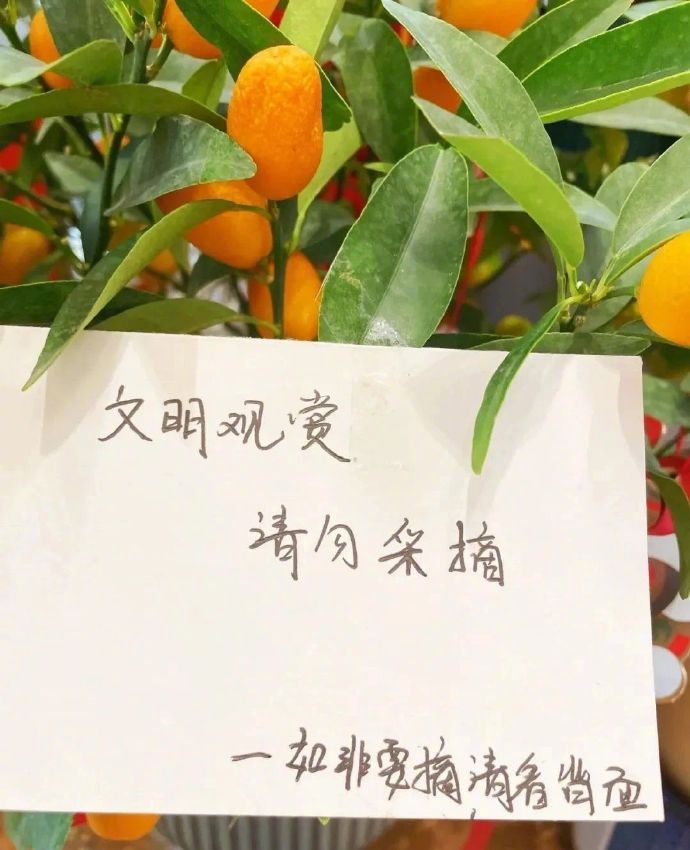 文明观赏
请勿采摘
一如非要摘请看背面